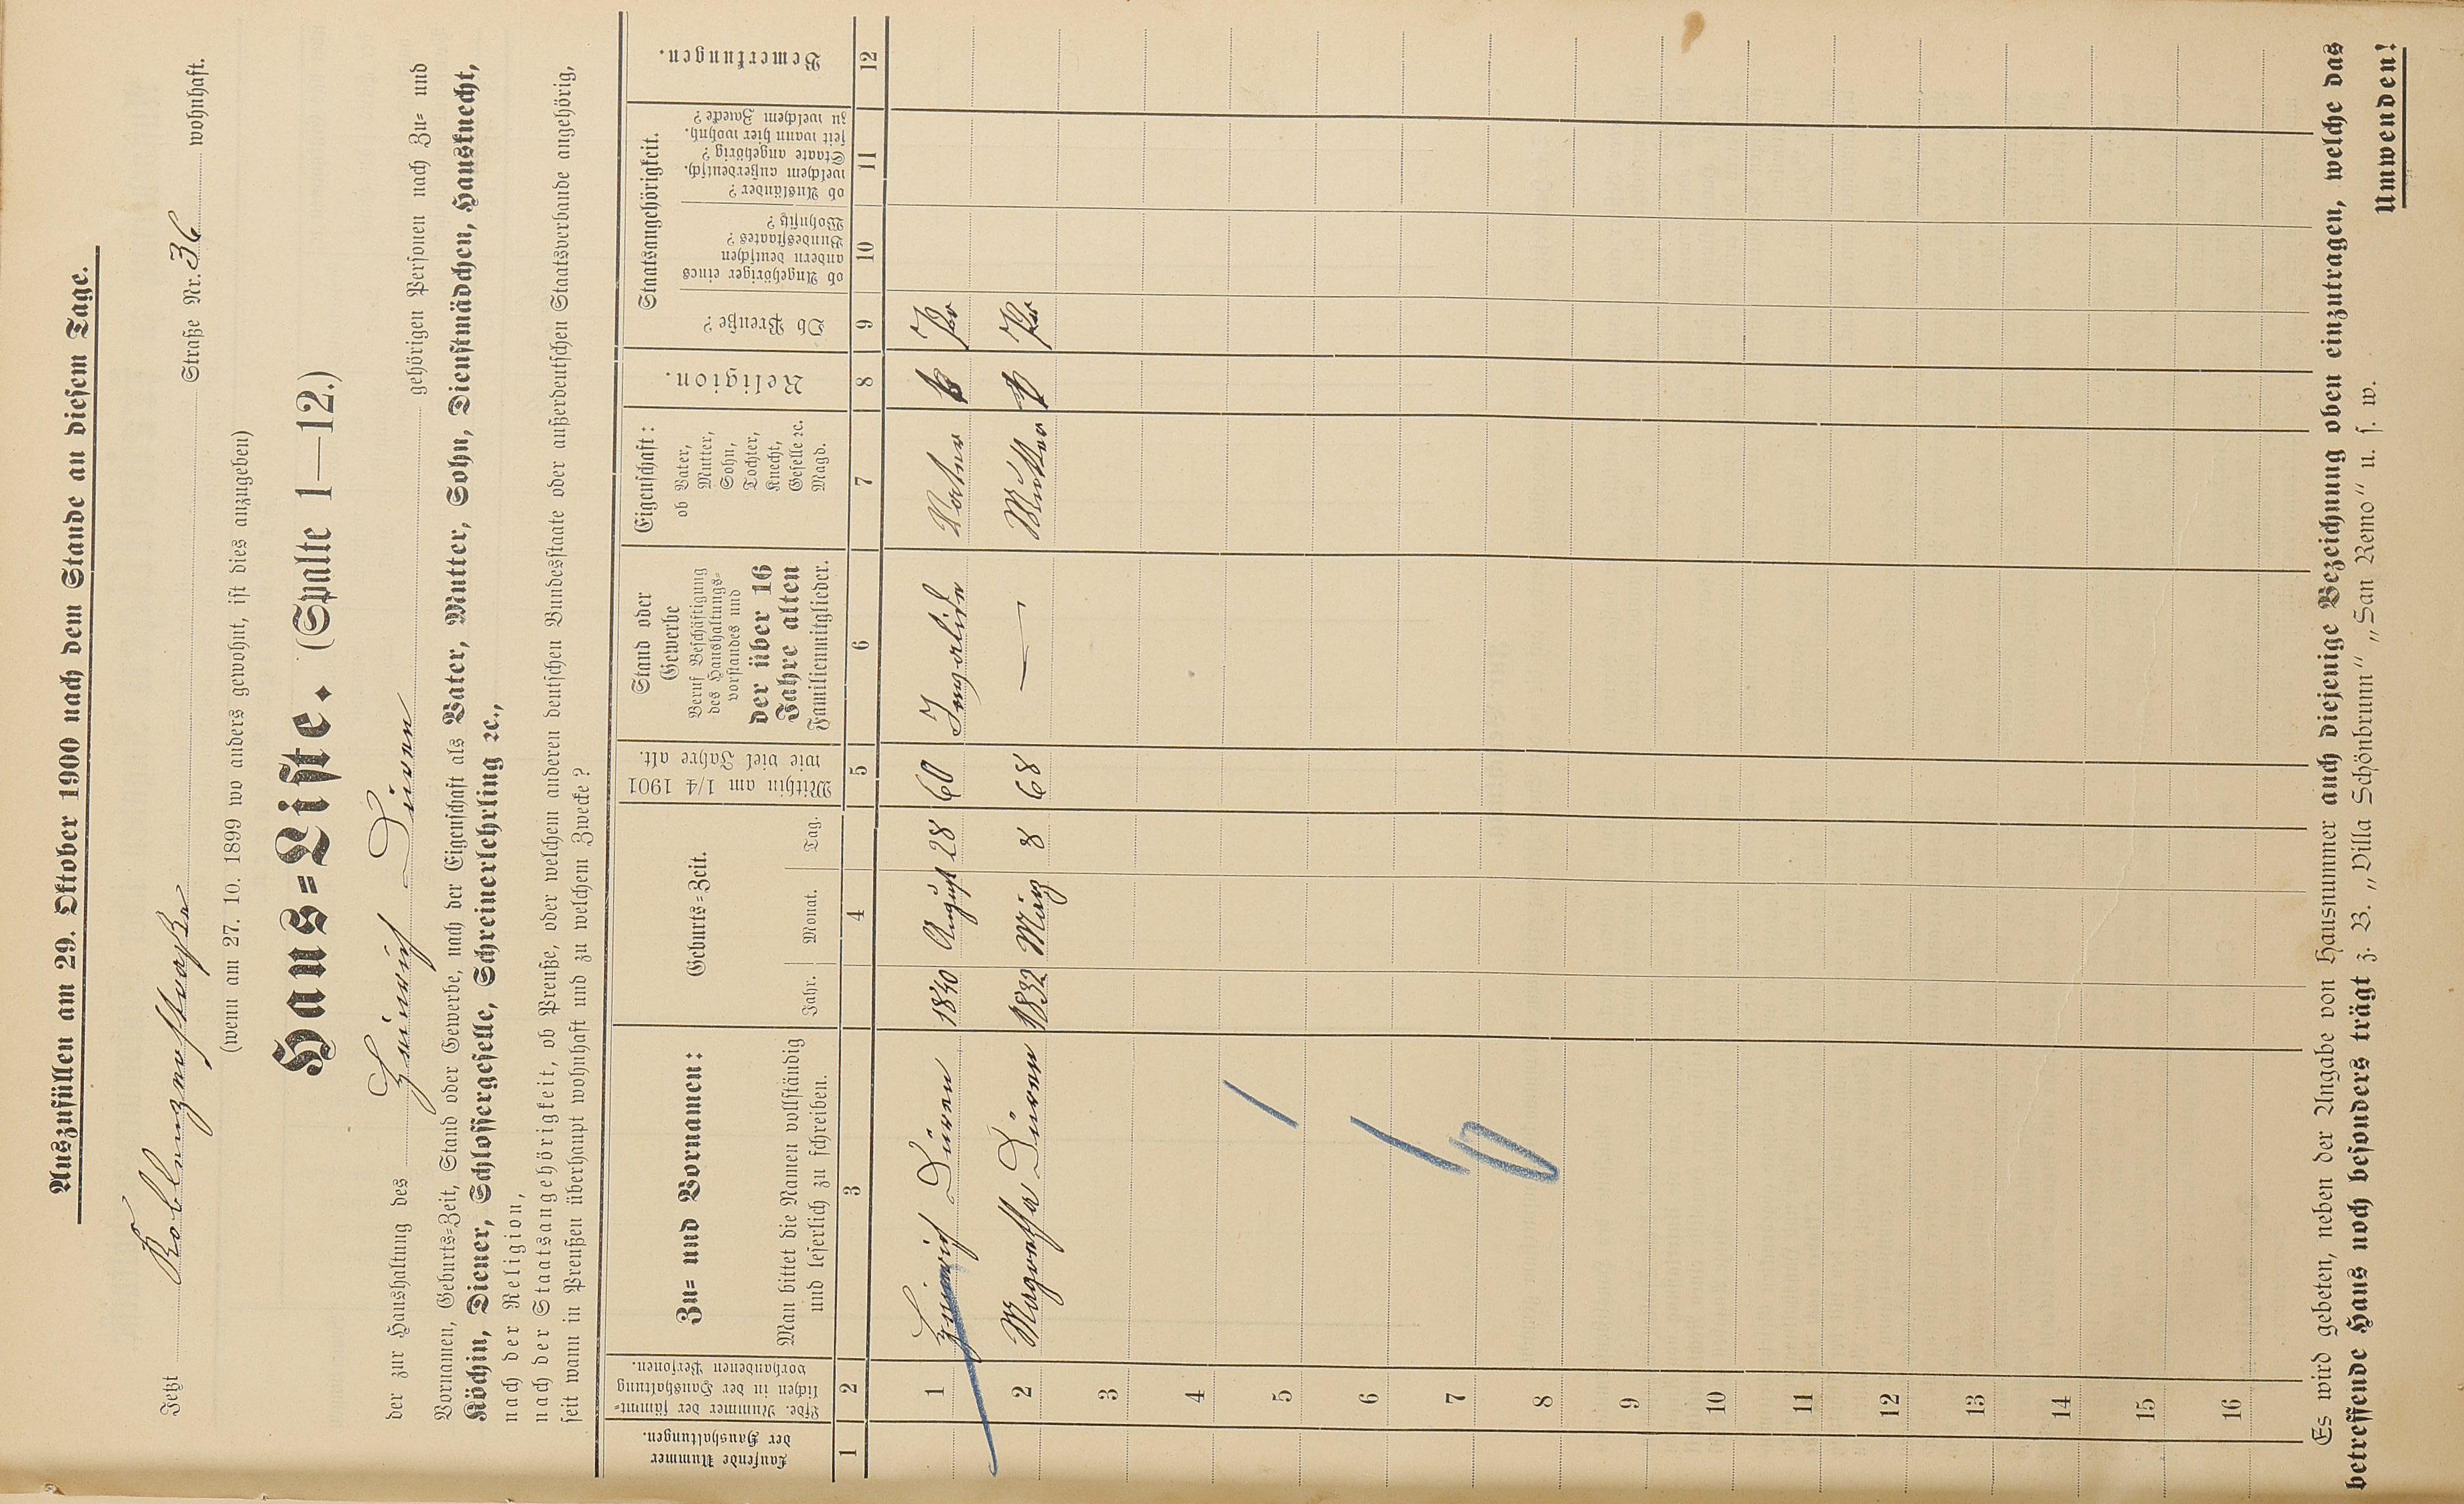 Auszufüllen am 29. Oktober 1900 nach dem Stande an diesem Tage.
Jetzt Koblenzerstraße Straße Nr. 36 wohnhaft.
(wenn am 27. 10. 1899 wo anders gewohnt, ist dies anzugeben)
Haus=Liste. (Spalte 1—12.)
der zur Haushaltung des Heinrich Düren gehörigen Personen nach Zu= und
Vornamen, Geburts=Zeit, Stand oder Gewerbe, nach der Eigenschaft als Vater, Mutter, Sohn, Dienstmädchen, Hausknecht,
Köchin, Diener, Schlossergeselle, Schreinerlehrling ꝛc.,
nach der Religion,
nach der Staatsangehörigkeit, ob Preuße, oder welchem anderen deutschen Bundesstaate oder außerdeutschen Staatsverbande angehörig,
seit wann in Preußen überhaupt wohnhaft und zu welchem Zwecke?
Laufende Nummer
der Haushaltungen.
Lfde. Nummer der sämmt=
lichen in der Haushaltung
vorhandenen Personen.
Zu= und Vornamen:
Man bittet die Namen vollständig
und leserlich zu schreiben.
Geburts=Zeit.
Jahr. Monat. Tag.
Mithin am 1/4 1901
wie viel Jahre alt.
Stand oder
Gewerbe
Beruf Beschäftigung
des Haushaltungs=
vorstandes und
der über 16
Jahre alten
Familienmitglieder.
Eigenschaft:
ob Vater,
Mutter,
Sohn,
Tochter,
Knecht,
Geselle ꝛc.
Magd.
Religion.
Staatsangehörigkeit.
Ob Preuße?
ob Angehöriger eines
andern deutschen
Bundesstaates?
Wohnsitz?
ob Ausländer?
welchem außerdeutsch.
Staate angehörig?
seit wann hier wohnh.
zu welchem Zwecke?
Bemerkungen.
1 2 3 4 5 6 7 8 9 10 11 12
1 Heinrich Düren 1840 August 28 60 Invalide Vater Pr
2 Magretha Düren 1832 März 8 68 — Mutter Pr
3
4
5
6
7
8
9
10
11
12
13
14
15
16
Es wird gebeten, neben der Angabe von Hausnummer auch diejenige Bezeichnung oben einzutragen, welche das
betreffende Haus noch besonders trägt z. B. „Villa Schönbrunn“ „San Remo“ u. s. w.
Umwenden!